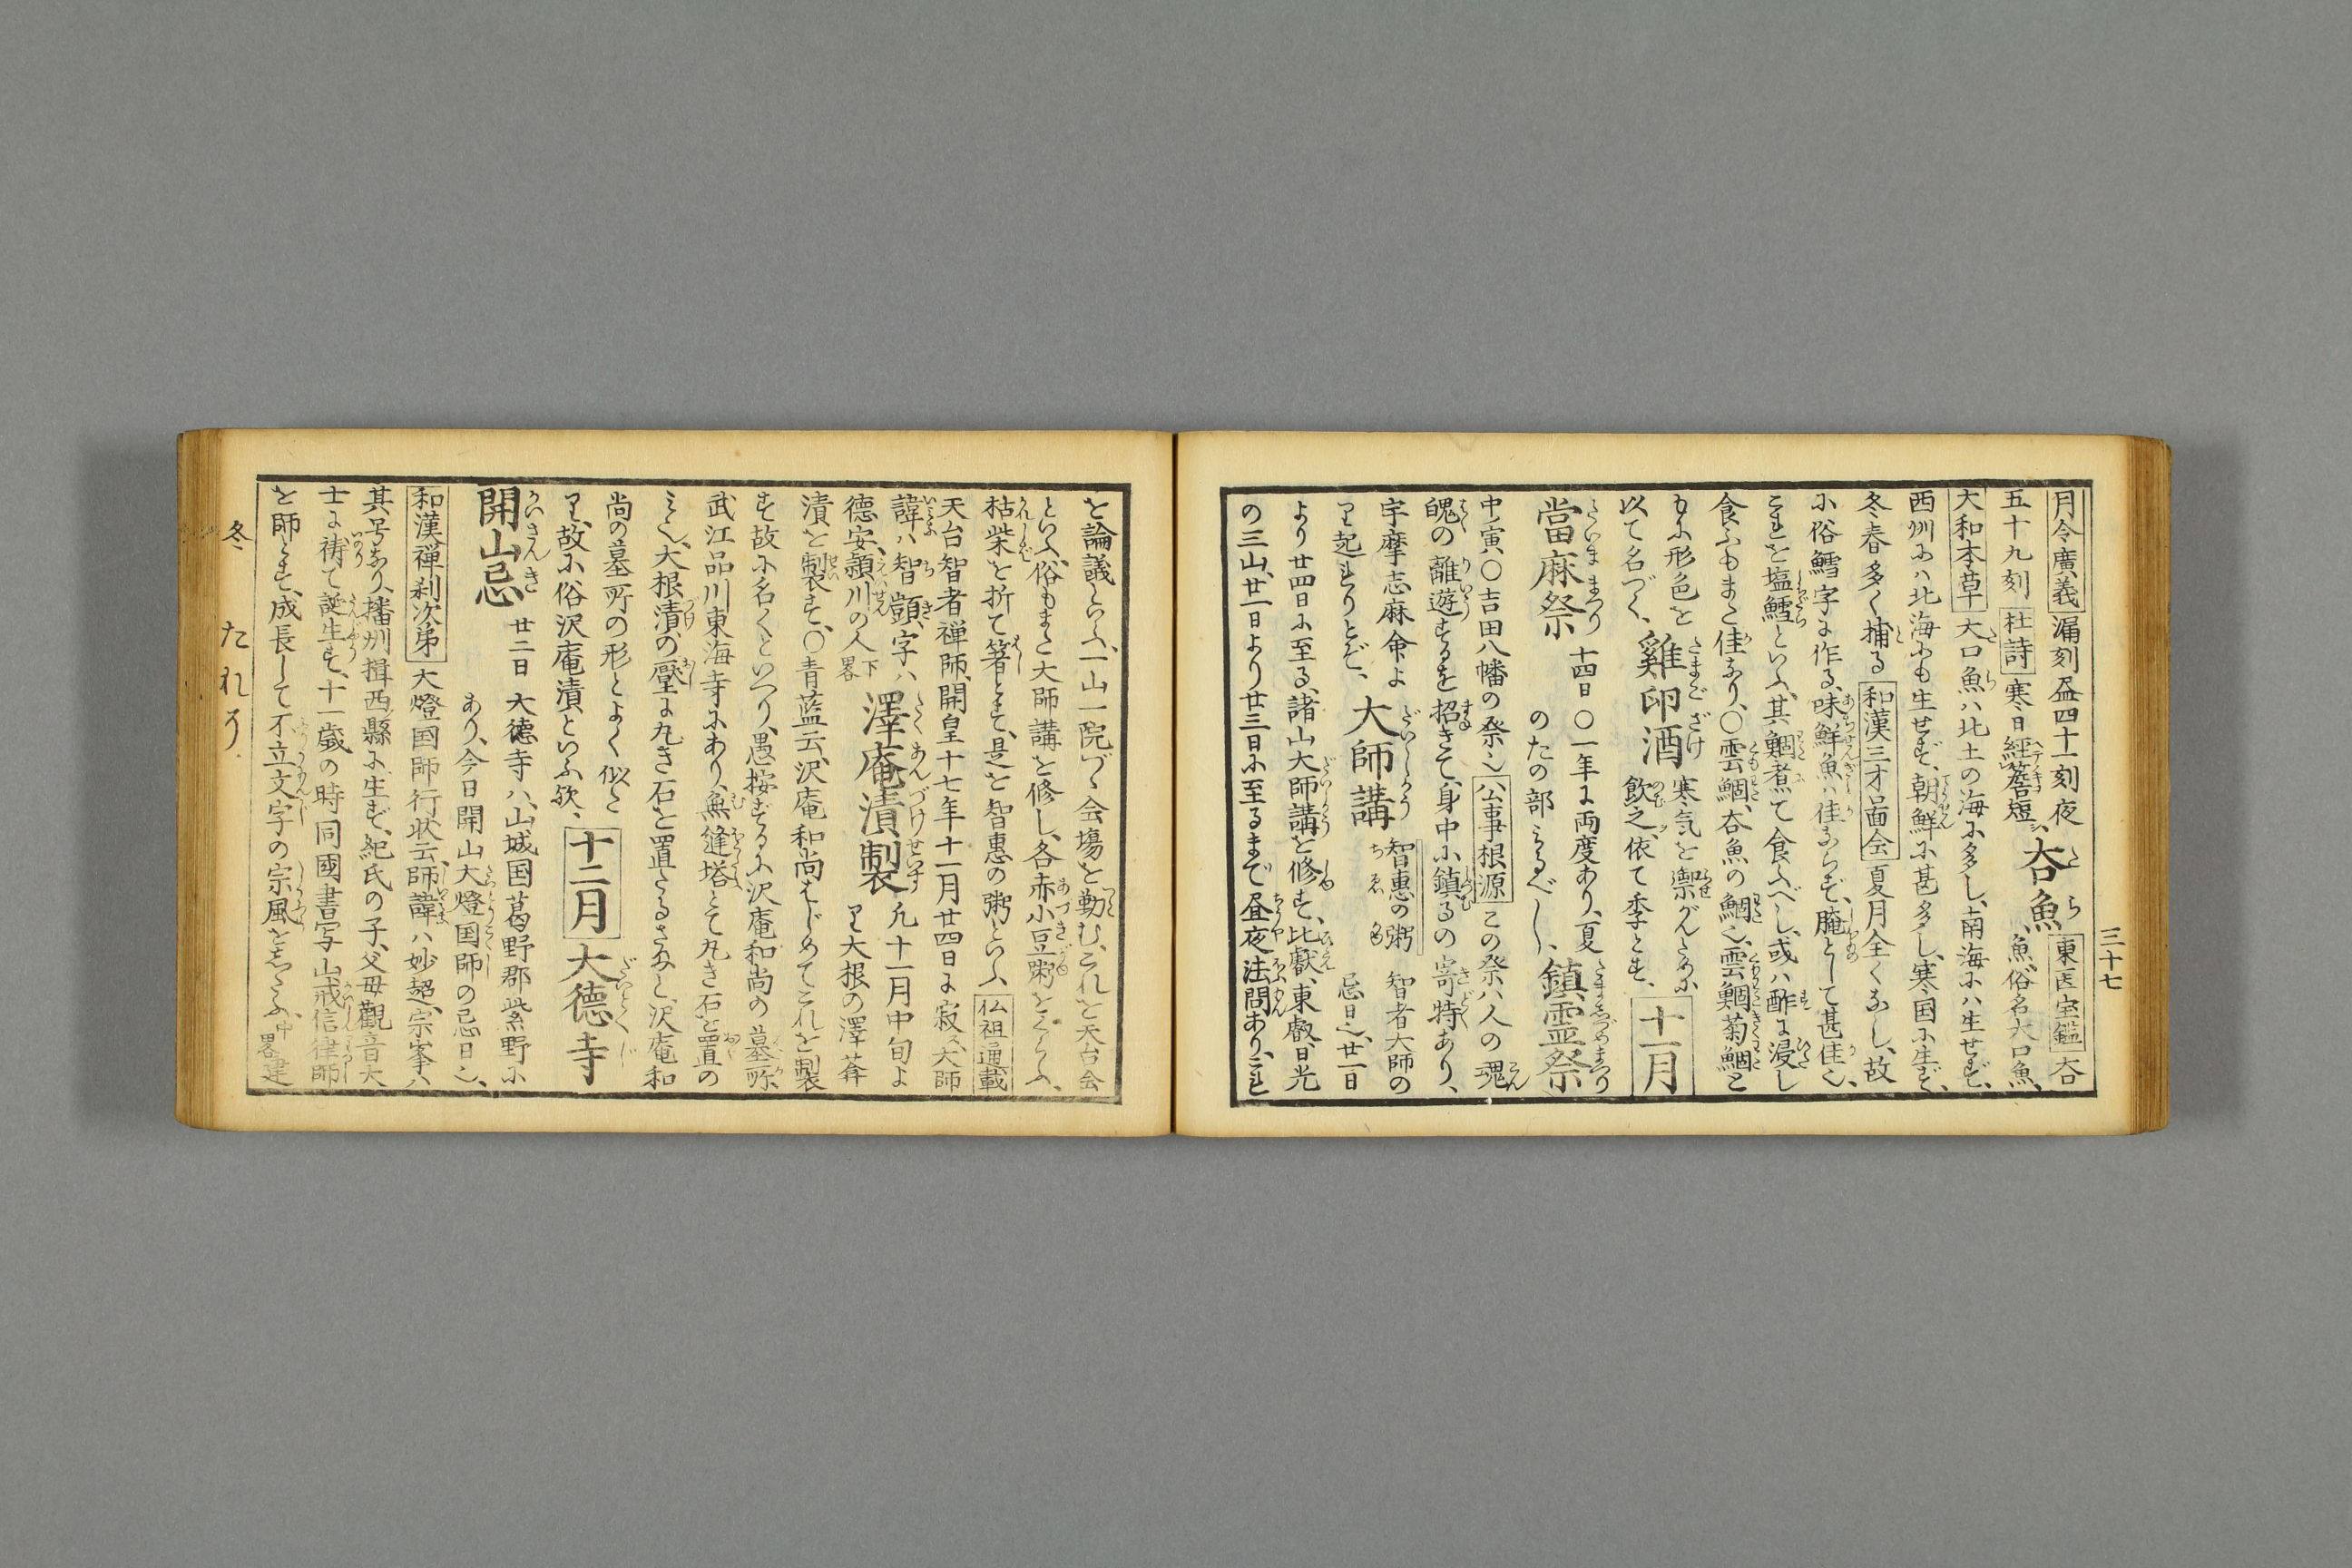 三十七
月令廣義漏刻昼四十一刻夜
五十九刻杜詩寒日經簷短
夻魚東医宝鑑夻
魚俗名大口魚
大和本草大口魚ハ北土の海に多し、南海にハ生せず、
西州にハ北海にも生せず、朝鮮に甚多し、寒国に生ず、
冬春多く捕る和漢三才圖会夏月全くなし、故
に俗鱈字に作る、味鮮魚ハ佳ならず、腌として甚佳也、
これを塩鱈といふ、其鯝煮て食ふべし、或ハ酢に浸し
食ふもまた佳なり、〇雲鯝、夻魚の鯝也、雲鯝菊鯝と
もに形色を
以て名づく、
雞卵酒
寒気を禦がんために
飲之、依て季とす、
十一月
當麻祭
十四日〇一年に両度あり、夏
のたの部みるべし、
鎮霊祭
中ノ寅〇吉田八幡の祭也公事根源この祭ハ人の魂
魄の離遊するを招きて、身中に鎮るの寄特あり、
宇摩志麻命よ
り起れりとぞ、
大師講
智惠の粥
智者大師の
忌日也、廿一日
より廿四日に至る、諸山大師講を修す、比叡、東叡、日光
の三山、廿一日より廿三日に至るまで昼夜法問あり、これ
を論議といふ、一山一院づゝ会場を勤む、これを天台会
といふ、俗もまた大師講を修し、各赤小豆粥をくらふ、
枯柴を折て箸とす、是を智惠の粥といふ仏祖通載
天台智者禅師、開皇十七年十一月廿四日に寂ス、大師
諱ハ智顗、字ハ
德安、潁川の人下畧
澤庵漬製
凡十一月中旬よ
り大根の澤菴
漬を製す、〇青藍云、沢庵和尚はじめてこれを製
す故に名くといへり、愚按ずるに沢庵和尚の墓所
武江品川東海寺にあり、無縫塔とて丸き石を置の
み也、大根漬の壓に丸き石を置たるさま也、沢庵和
尚の墓所の形とよく似た
り、故に俗沢庵漬といふ歟、
十二月
大德寺
開山忌
廿二日大徳寺ハ、山城国葛野郡紫野に
あり、今日開山大燈国師の忌日也、
和漢禅刹次第大燈国師行状云、師諱ハ妙超、宗峯ハ
其号なり、播州揖西縣に生ず、紀氏の子、父母觀音大
士に祷て誕生す、十一歳の時同國書写山戒信律師
を師とす、成長して不立文字の宗風をしたふ、中畧建
冬 たれそ